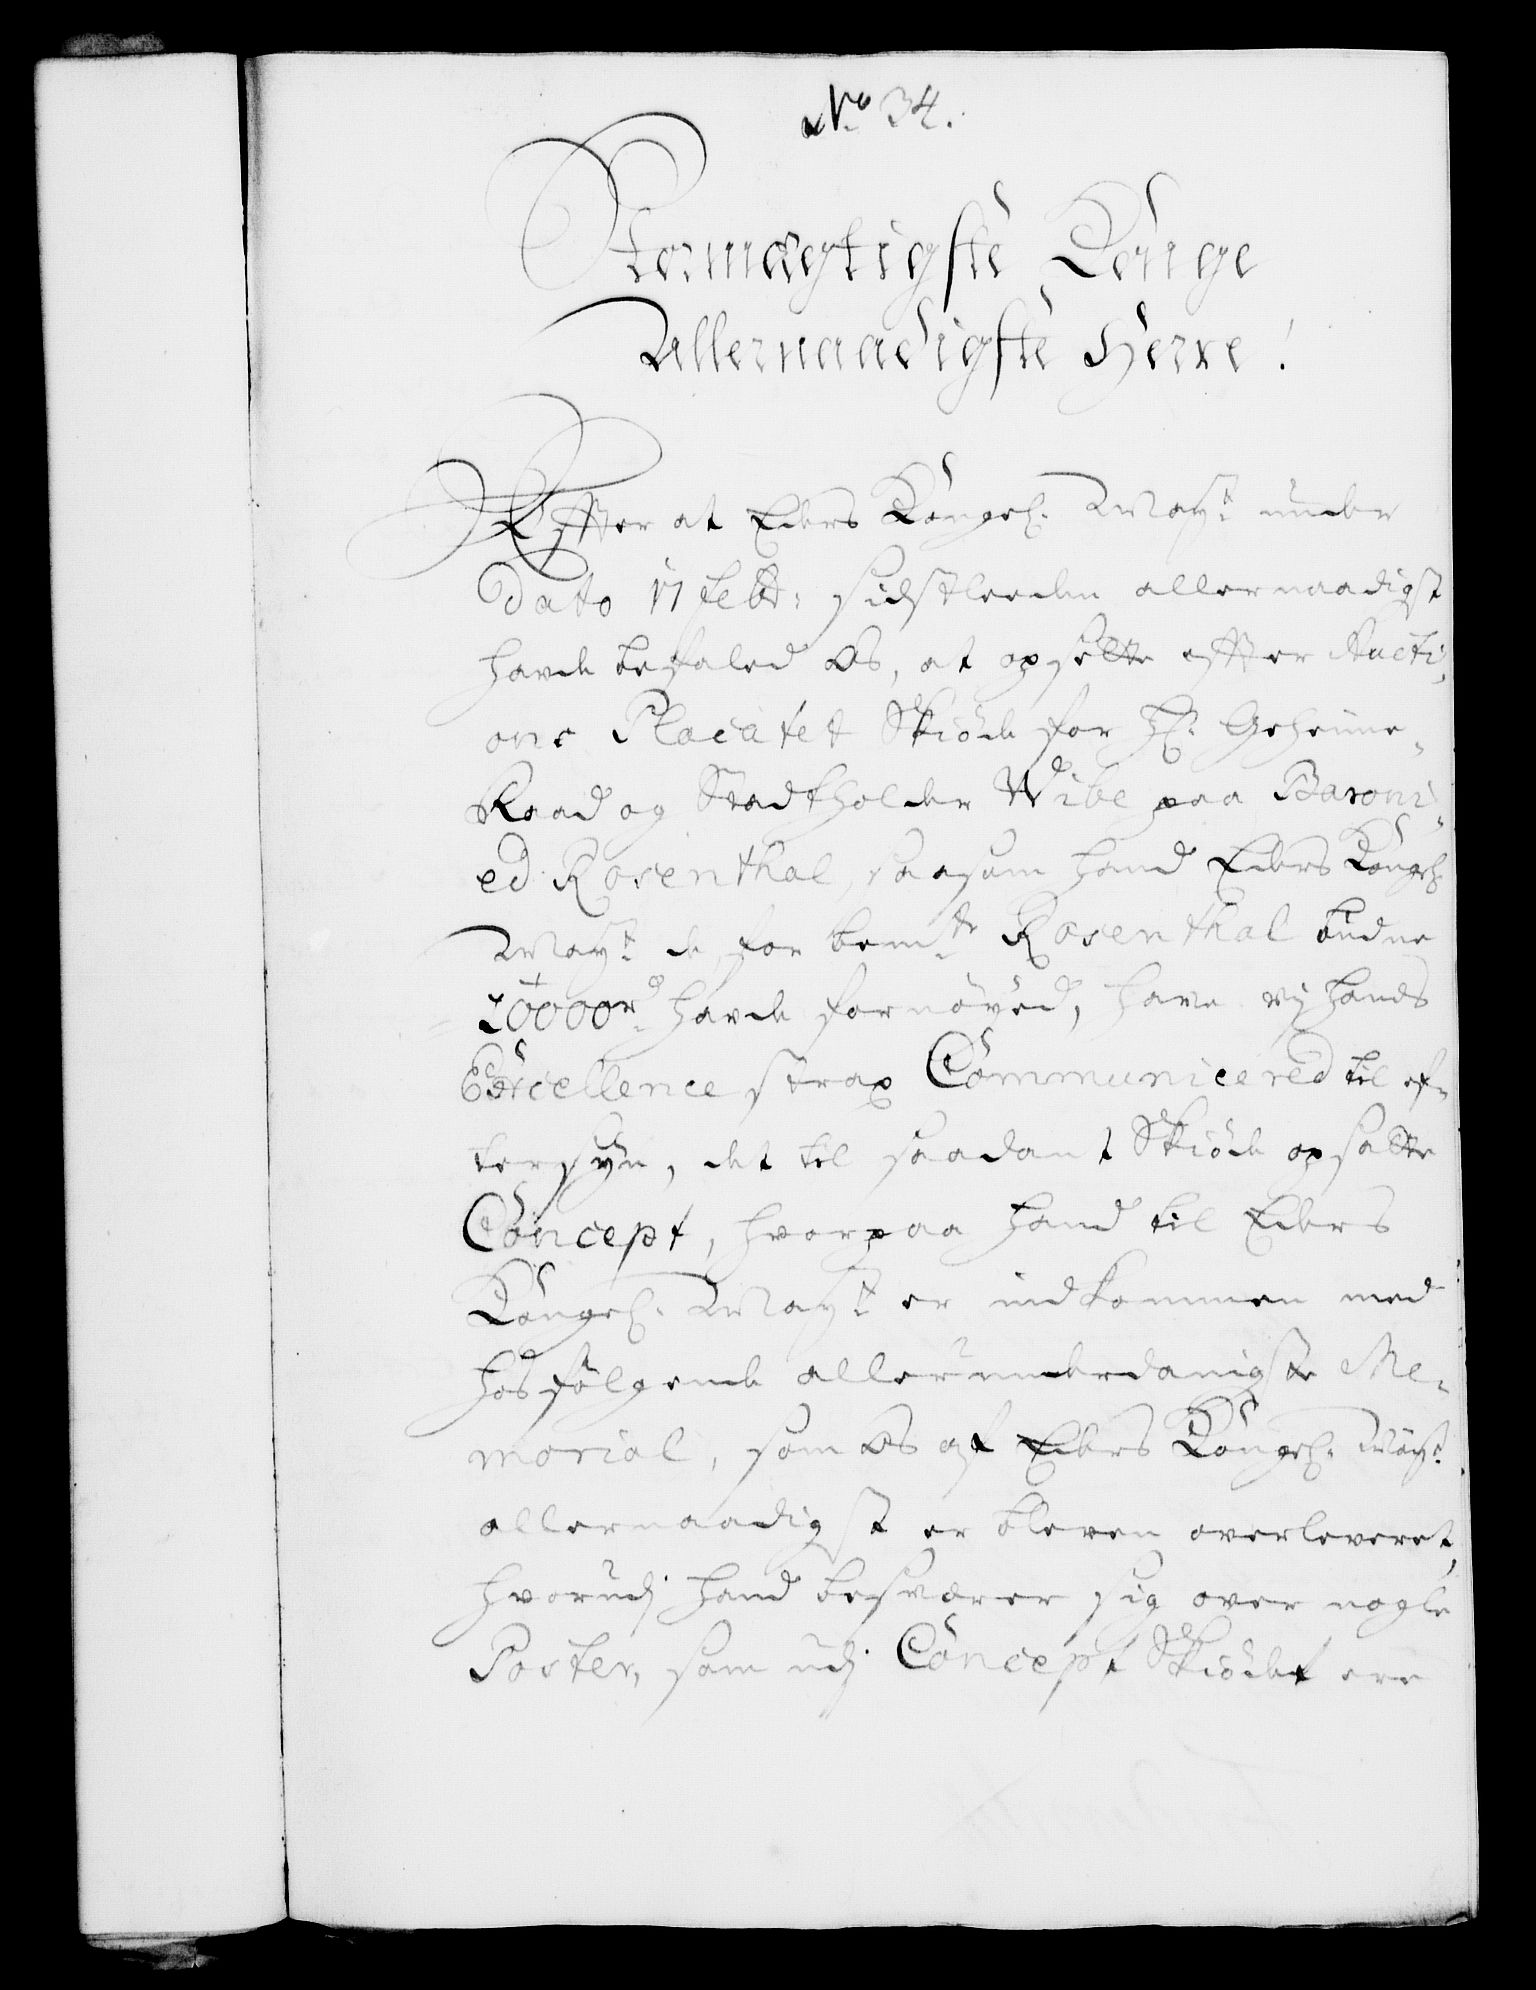 No 34.
Stormægtigste Konge
Allernaadigste Herre!
Effter at Eders Kongel. Mayt. under
Dato 17 febr: sidstleeden allernaadigst
hafde befaled Os, at opsette effter Aucti-
ons Placatet Skiöde for Hr. Geheime-
Raad og Stadtholder Wibe paa Baroni-
ed Rosenthal, saasom hand Eders Kongel.
Mayt. de for bemte. Rosenthal budne
10000 rd. hafde fornöyed, have vi hands
Excellence strax Communicered til ef-
tersyn, det til saadant Skiöde opsatte
Concept, hvorpaa hand til Eders
Kongel. Mayt. er indkommen med
hosfölgende allerunderdanigste Me-
morial, som Os af Eders Kongel. Mayt.
allernaadigst er bleven overleveret,
hvorudj hand besværer sig over nogle
Poster, som udj Concept Skiödet ere